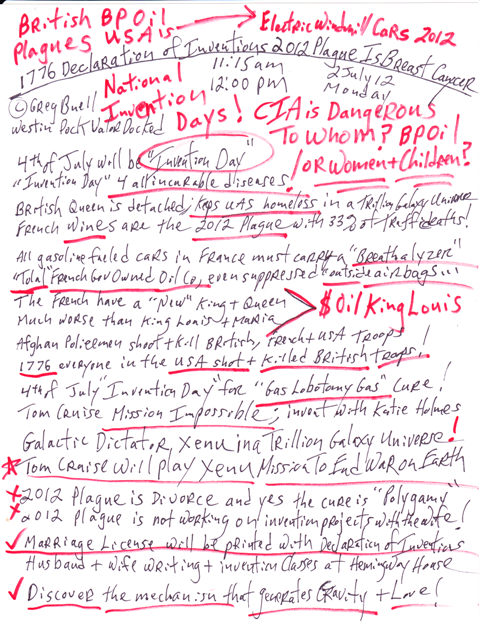 British BPOil
Plagues USA is
Electric Windmill Cars 2012
1776 Declaration of Inventions 2012 Plague Is Breast Cancer
11:15 am
12:00 pm
2 July 12
Monday
National
Invention
Days!
© Greg Buell
Westin Dock Valor Docked
CIA is Dangerous
To Whom? BPOil
/or Women + Children?
4th of July will be "Invention Day"
"Invention Day" 4 all incurable diseases!
British Queen is detached; keps UAS homeless in a Trillion Galaxy Universe
French Wines are the 2012 Plague with 33% of Traff deaths!
All gasoline fueled cars in France must carry a "Breathalyzer"
"Total" French Gov Owned Oil Co, even suppressed "outside airbags...
The French have a "New" King + Queen
Much worse than King Louis + Maria
$ Oil King Louis
Afghan Policemen shoot + kill British, French + USA Troops
1776 everyone in the USA shot + killed British troops!
4th of July "Invention Day" for "Gas Lobotomy Gas" Cure!
Tom Cruise Mission Impossible; invent with Katie Holmes
Galactic Dictator Xenu in a Trillion Galaxy Universe!
Tom Cruise will play Xenu Mission To End War on Earth
2012 Plague is Divorce and yes the cure is "Polygamy"
2012 Plague is not working on invention projects with the wife!
Marriage License will be printed with Declaration of Inventions
Husband + Wife writing + invention classes at Hemingway House
Discover the mechanism that generates Gravity + Love!